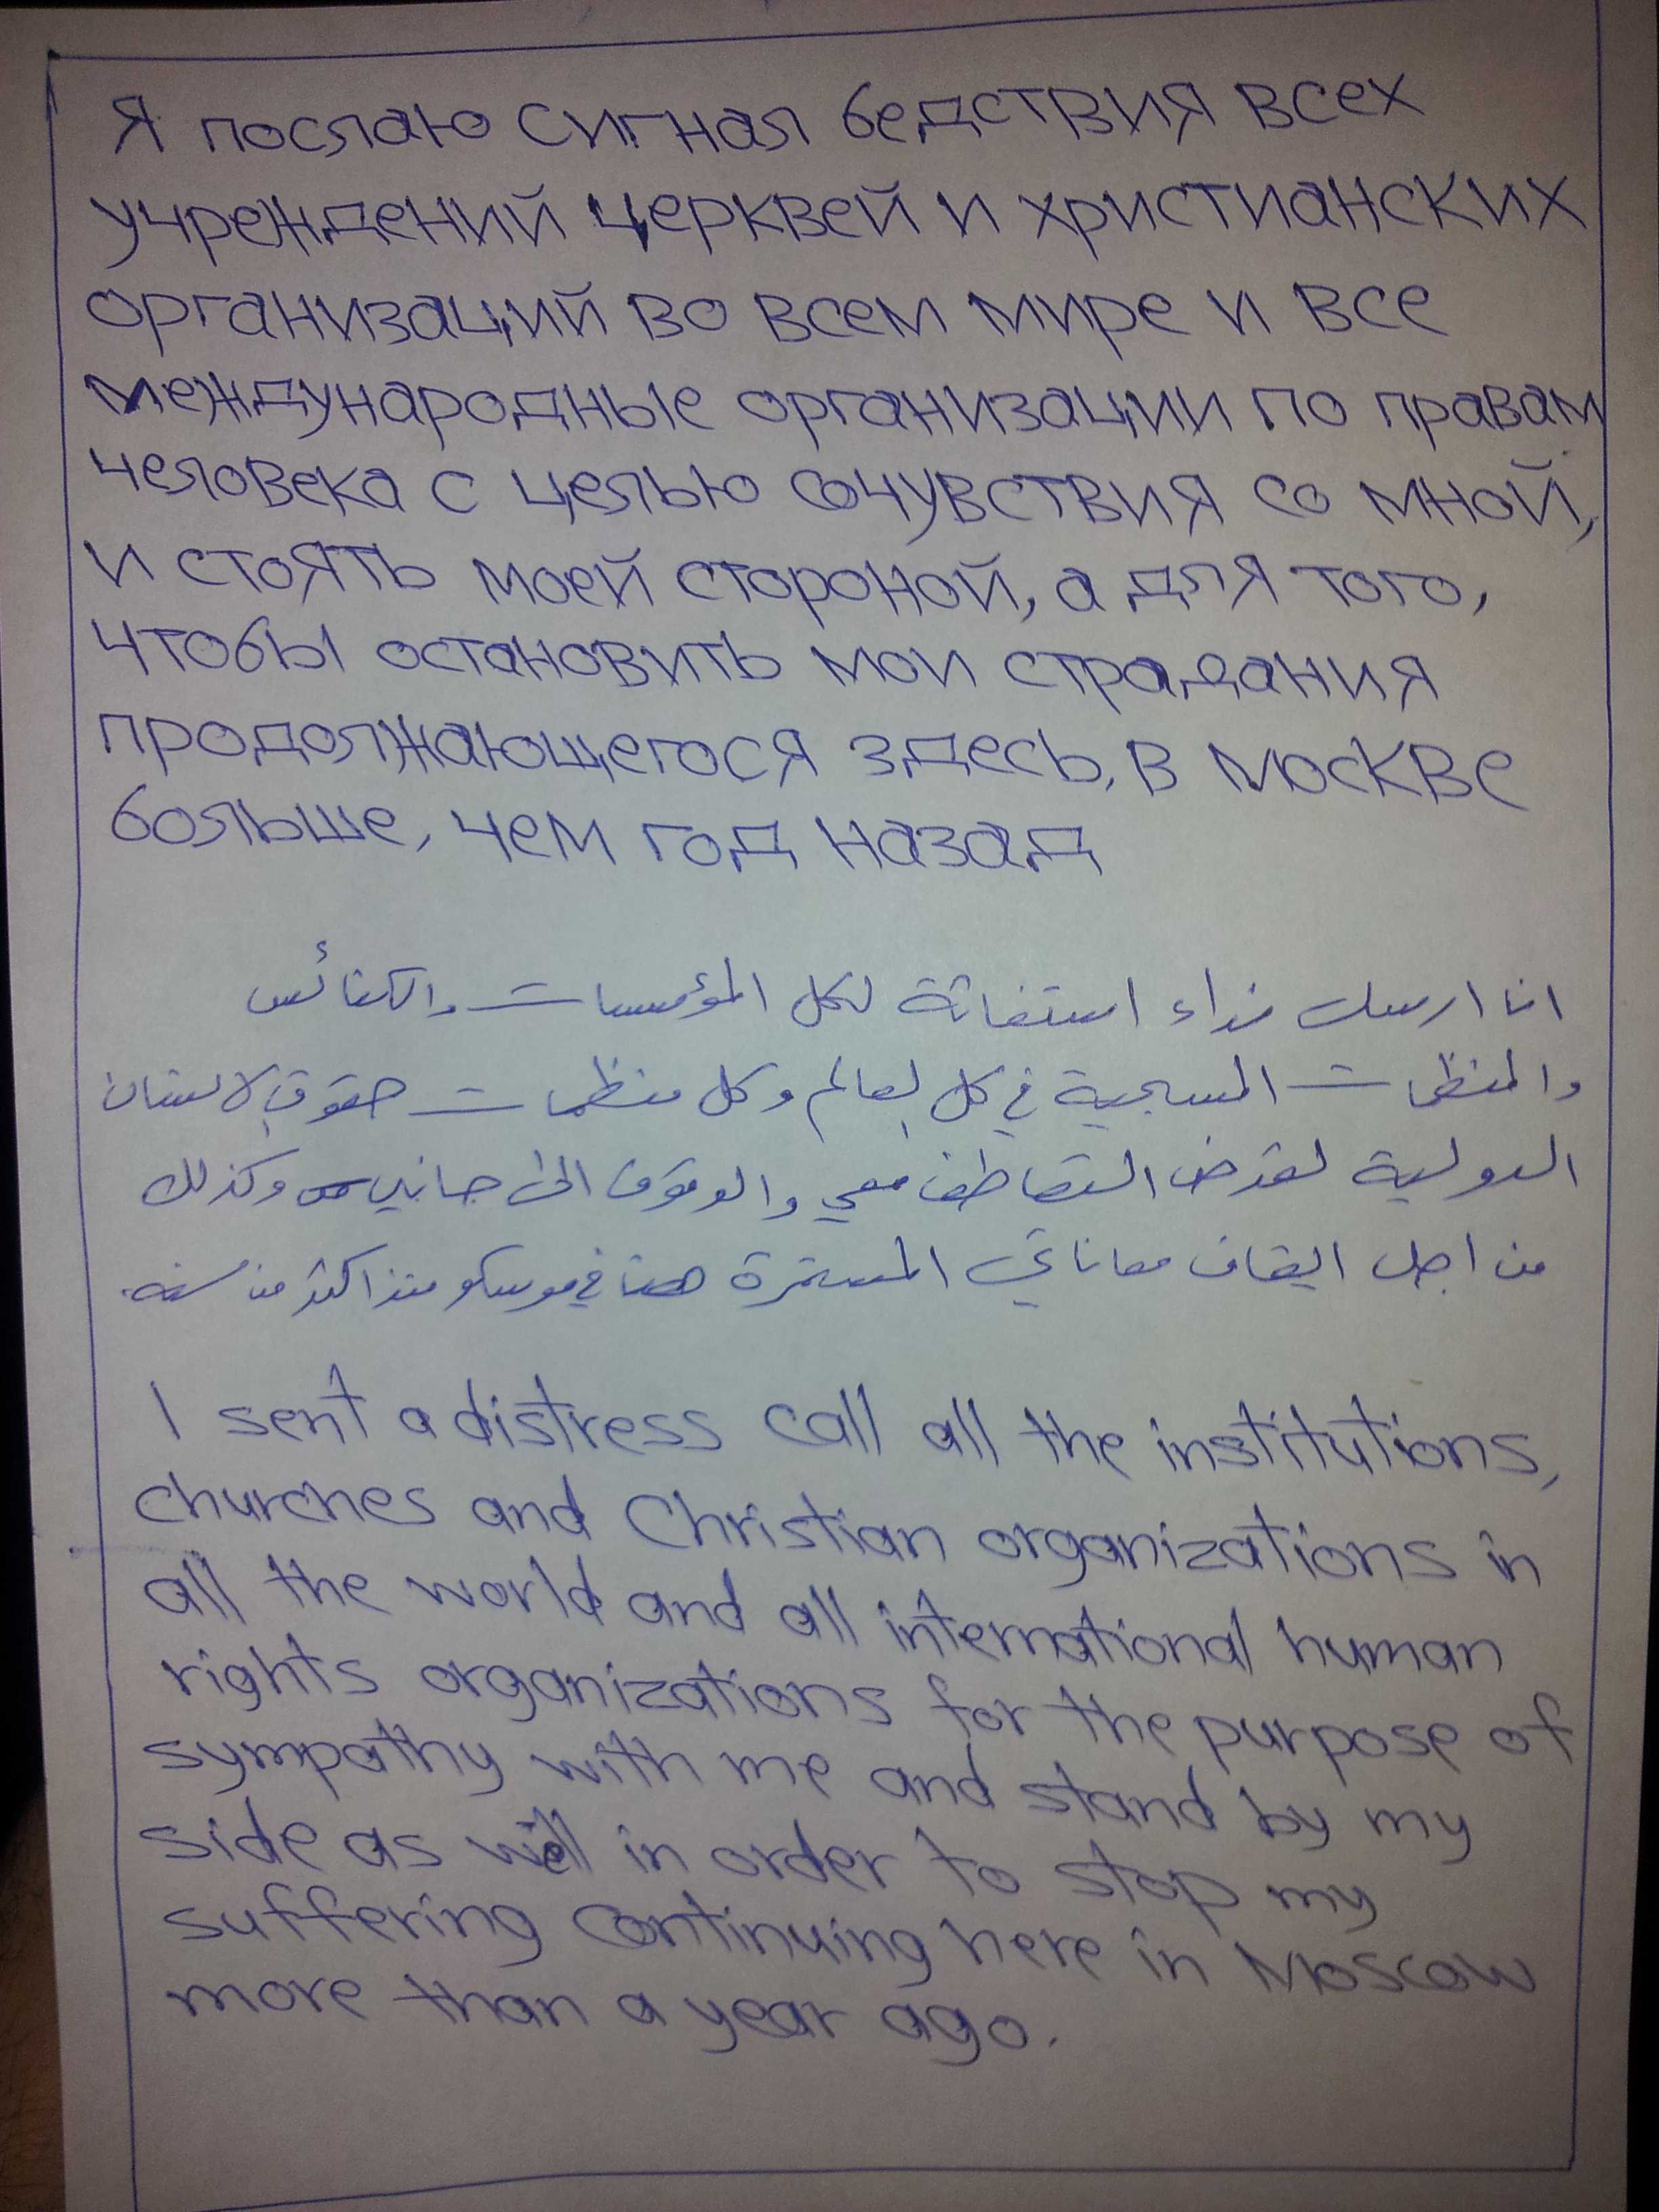 Я послаю сигнал бедствия всех
учреждений церквей и христианских
организаций во всем мире и все
международные организации по правам
человека с целью сочувствия со мной,
и стоять моей стороной, а для того,
чтобы остановить мои страдания
продолжающегося здесь, в Москве
больше, чем год назад
انا ارسل نداء استغاثة لكل المؤسسات والكنائس
والمنظمات المسيحية في كل العالم وكل منظمات حقوق الانسان
الدولية لغرض التعاطف معي والوقوف الى جانبي وكذلك
من اجل ايقاف معاناتي المستمرة هنا في موسكو منذ اكثر من سنه.
I sent a distress call all the institutions,
churches and Christian organizations in
all the world and all international human
rights organizations for the purpose of
sympathy with me and stand by my
side as well in order to stop my
suffering continuing here in Moscow
more than a year ago.